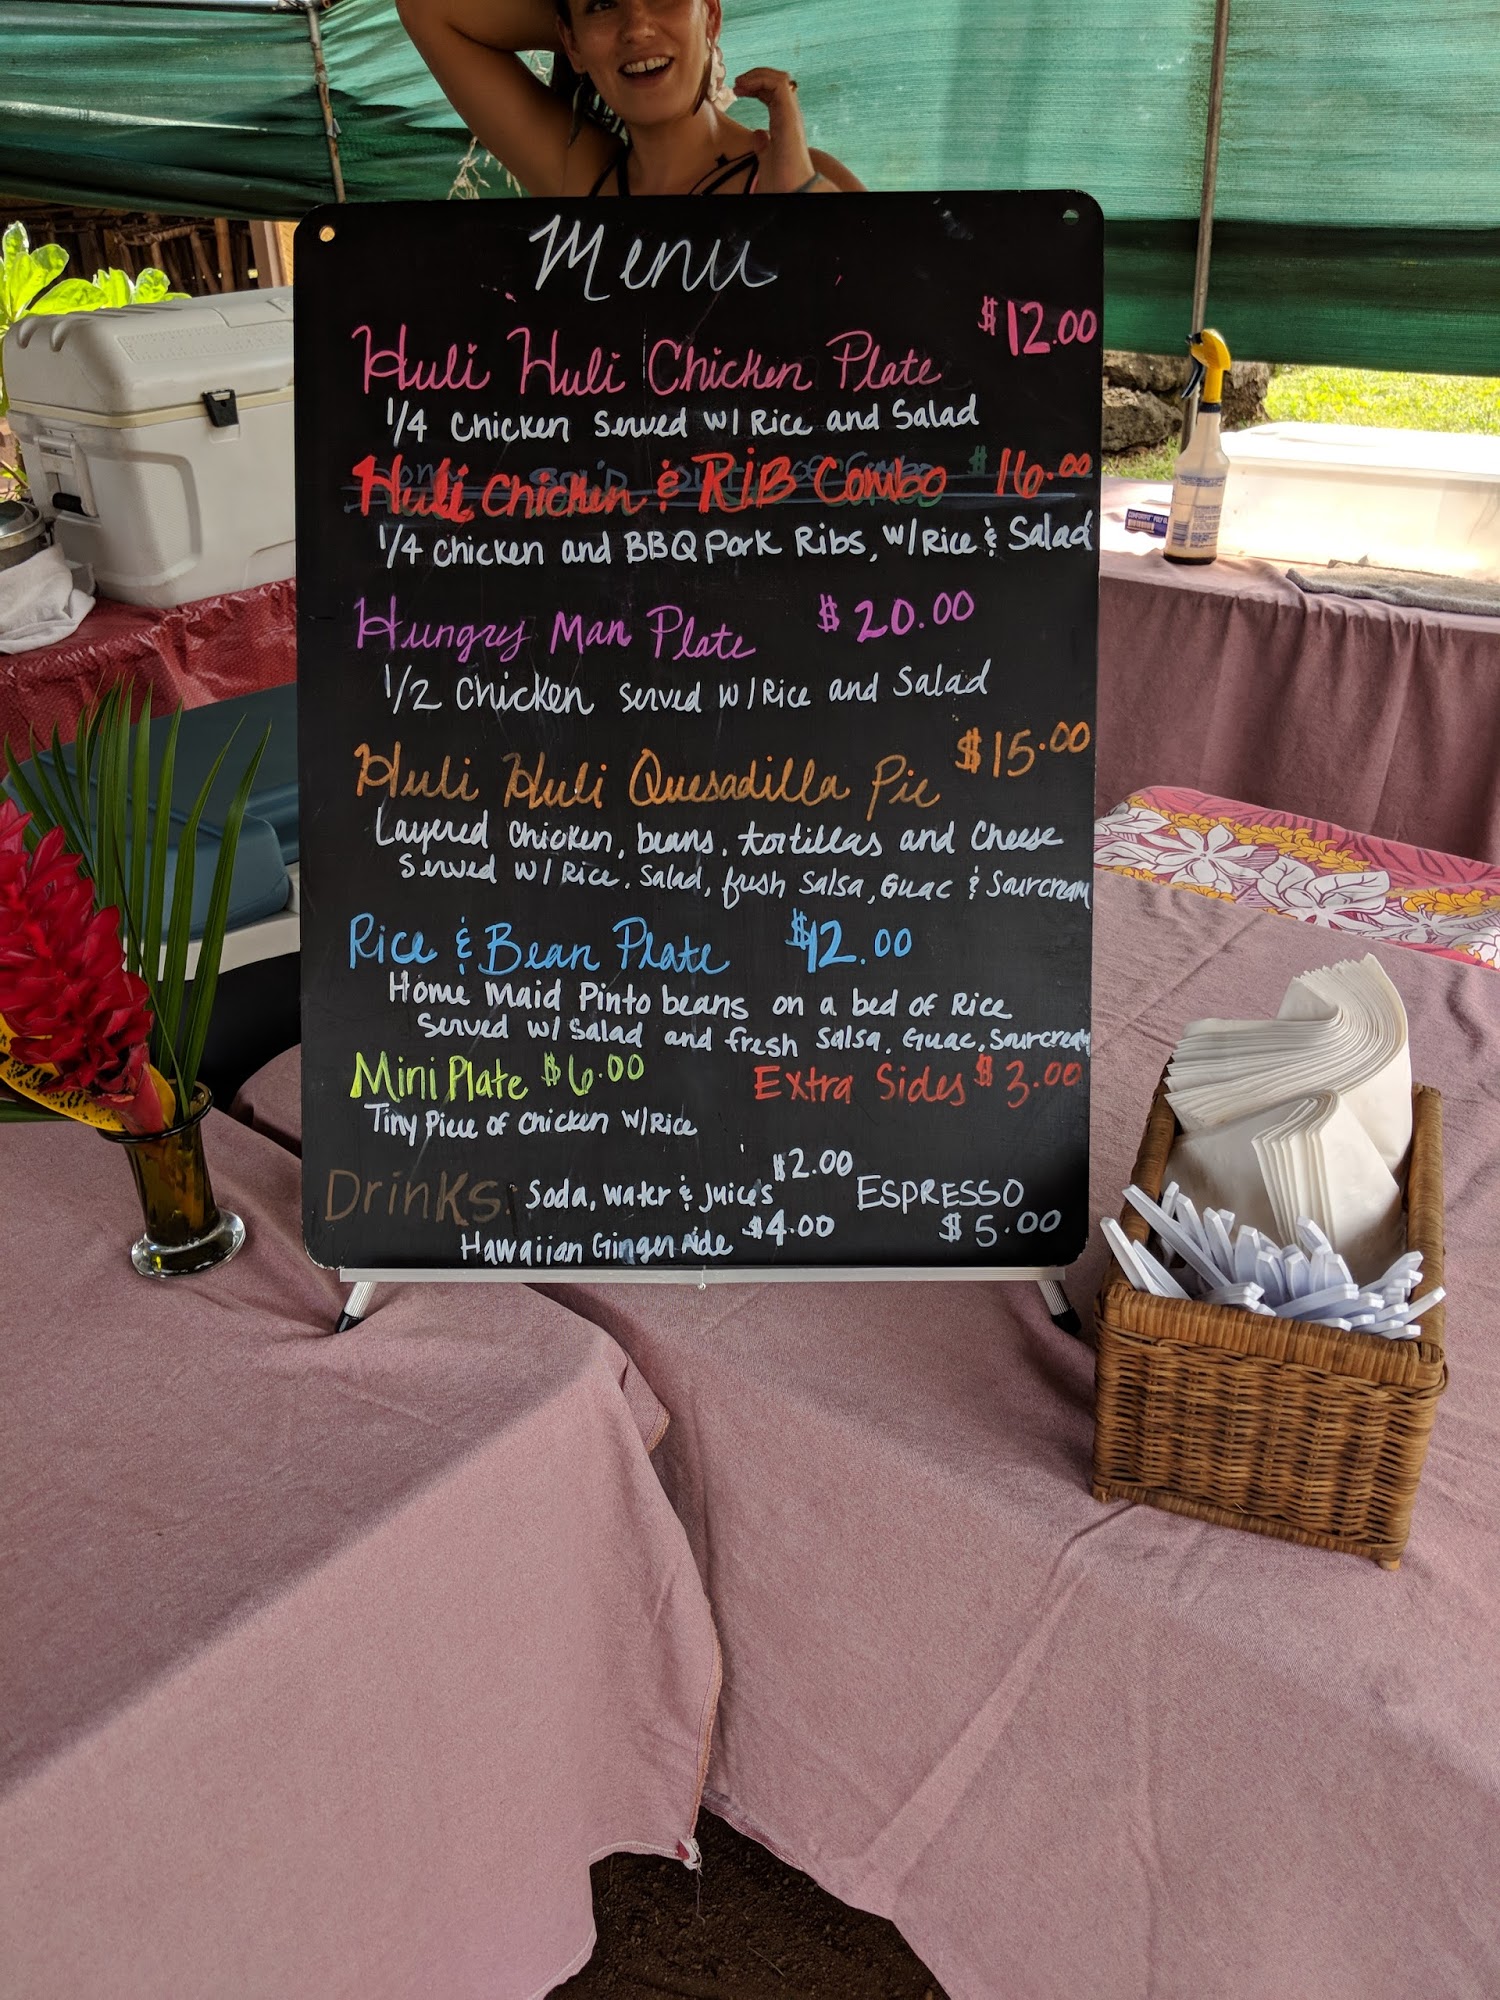 Menu
Huli Huli Chicken Plate $12.00
1/4 Chicken Served w/ Rice and Salad
Huli Chicken & RIB Combo $16.00
1/4 Chicken and BBQ Pork Ribs, w/Rice & Salad
Hungry Man Plate $20.00
1/2 Chicken served w/Rice and Salad
Huli Huli Quesadilla Pie $15.00
Layered Chicken, beans, tortillas and Cheese
Served w/ Rice, Salad, fresh Salsa, Guac & Sourcream
Rice & Bean Plate $12.00
Home Maid Pinto beans on a bed of Rice
Served w/ Salad and fresh Salsa, Guac, Sourcream
Mini Plate $6.00 Extra Sides $3.00
Tiny Piece of Chicken w/Rice
Drinks: Soda, water & juices $2.00 ESPRESSO
Hawaiian Ginger Ade $4.00 $5.00